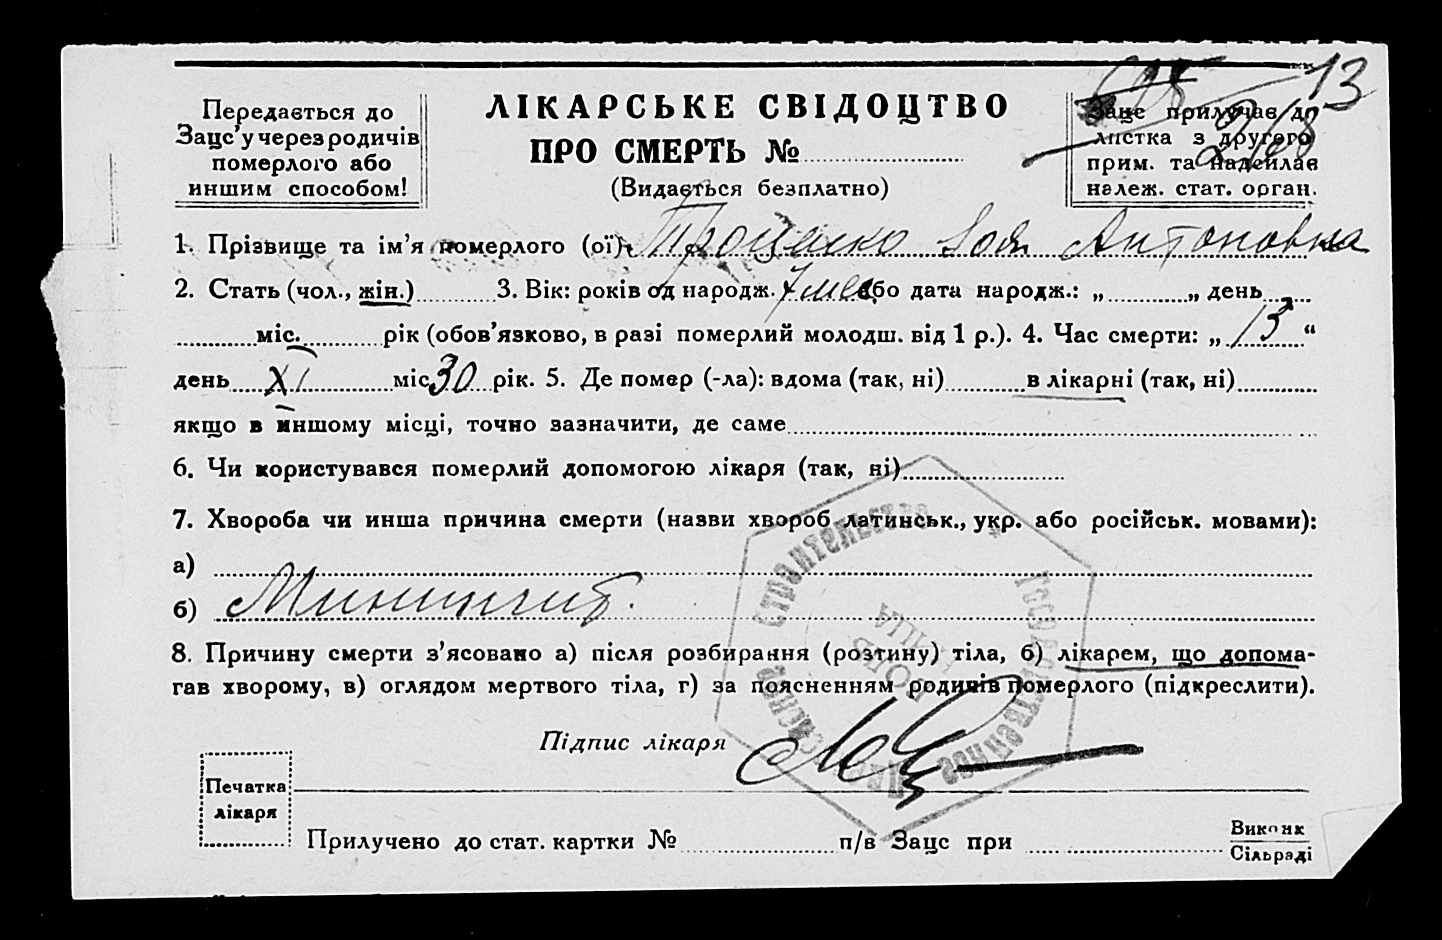 13
Передається до
Зацс’у через родичів
померлого або
иншим способом!
ЛІКАРСЬКЕ СВІДОЦТВО
ПРО СМЕРТЬ №
(Видається безплатно)
Зацс прилучає до
листка з другого
прим. та надсилає
належ. стат. орган.
1. Прізвище та ім’я померлого (ої) Проценко Зоя Антоновна
2. Стать (чол., жін.) 3. Вік: років од народж. 7 мес або дата народж.: „ „ день
міс. рік (обов’язково, в разі померлий молодш. від 1 р.). 4. Час смерти: „ 13 “
день XI міс 30 рік. 5. Де помер (-ла): вдома (так, ні) в лікарні (так, ні)
якщо в иншому місці, точно зазначити, де саме
6. Чи користувався померлий допомогою лікаря (так, ні)
7. Хвороба чи инша причина смерти (назви хвороб латинськ., укр. або російськ. мовами):
а)
б) Минингит.
8. Причину смерти з’ясовано а) після розбирання (розтину) тіла, б) лікарем, що допома-
гав хворому, в) оглядом мертвого тіла, г) за поясненням родичів померлого (підкреслити).
Підпис лікаря
Печатка
лікаря
Прилучено до стат. картки № п/в Зацс при
Виконк
Сільраді